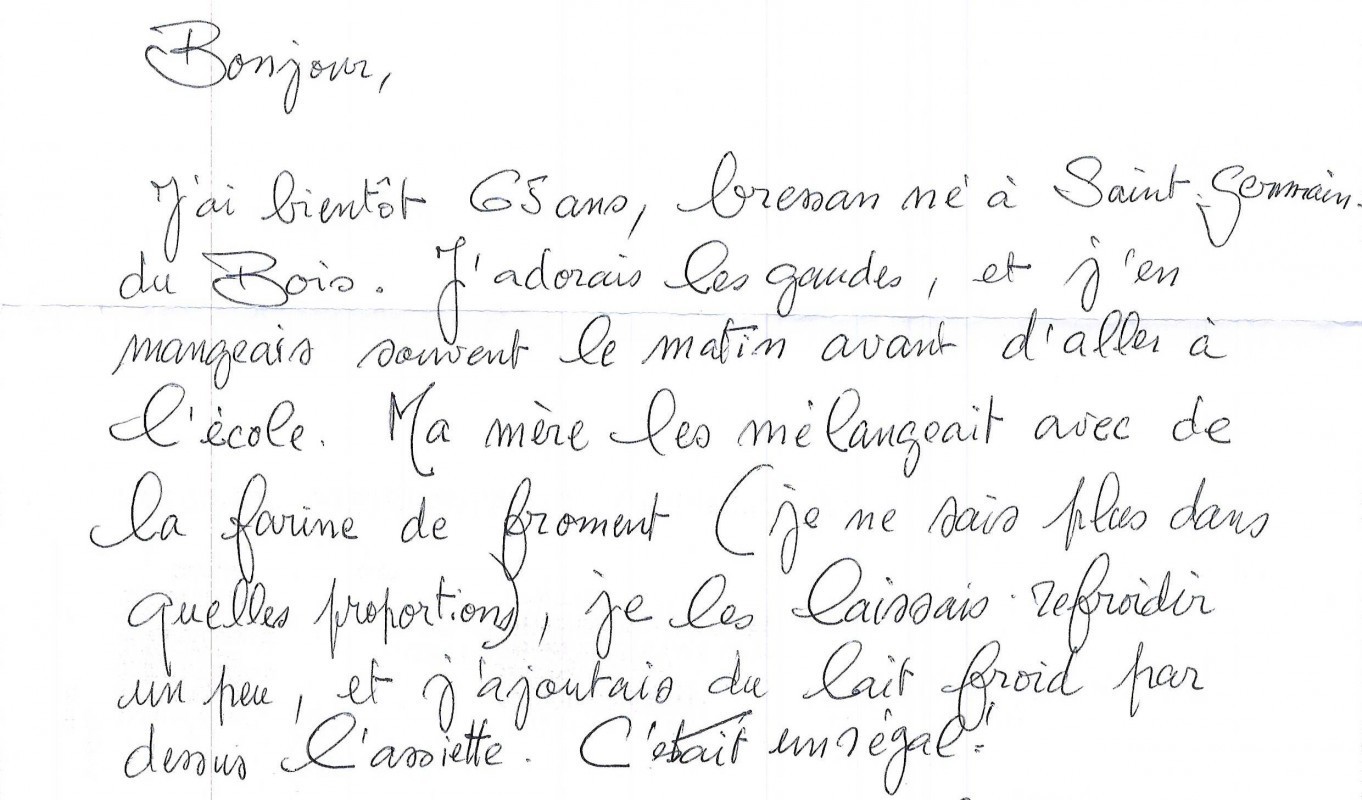 Bonjour,
J'ai bientôt 65 ans, bressan né à Saint-Germain-
du Bois. J'adorais les gaudes, et j'en
mangeais souvent le matin avant d'aller à
l'école. Ma mère les mélangeait avec de
la farine de froment (je ne sais plus dans
quelles proportions), je les laissais refroidir
un peu, et j'ajoutais du lait froid par
dessus l'assiette. C'était un régal!